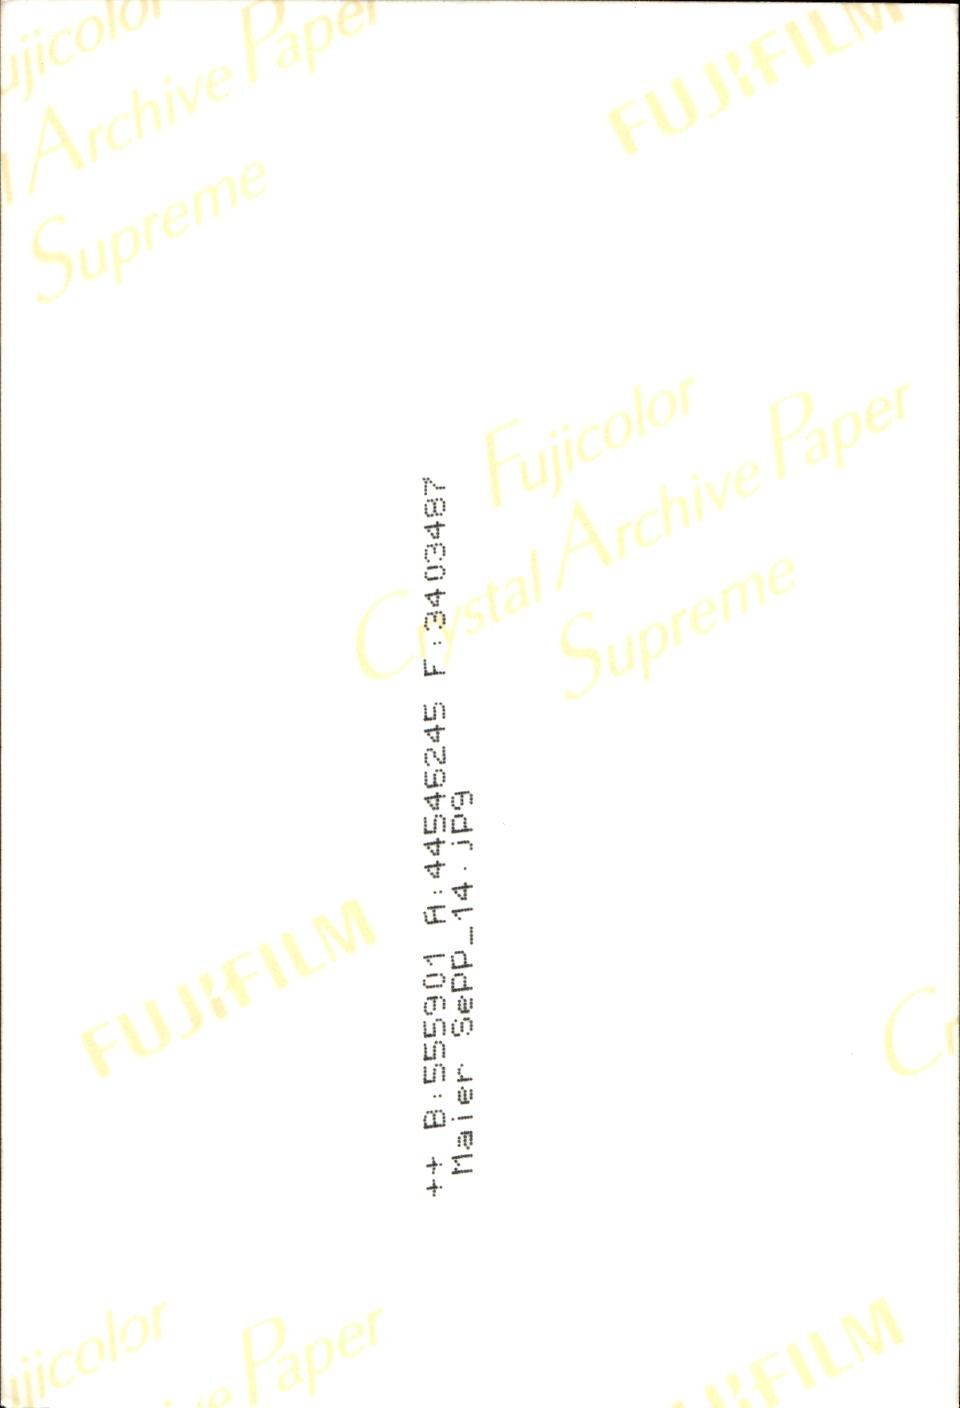 Fujicolor
Archive Paper
Supreme
FUJIFILM
Fujicolor
Crystal Archive Paper
Supreme
++ B:555901 A:44546245 F:3403487
Maier Sepp_14.jpg
FUJIFILM
Paper
FUJIFILM